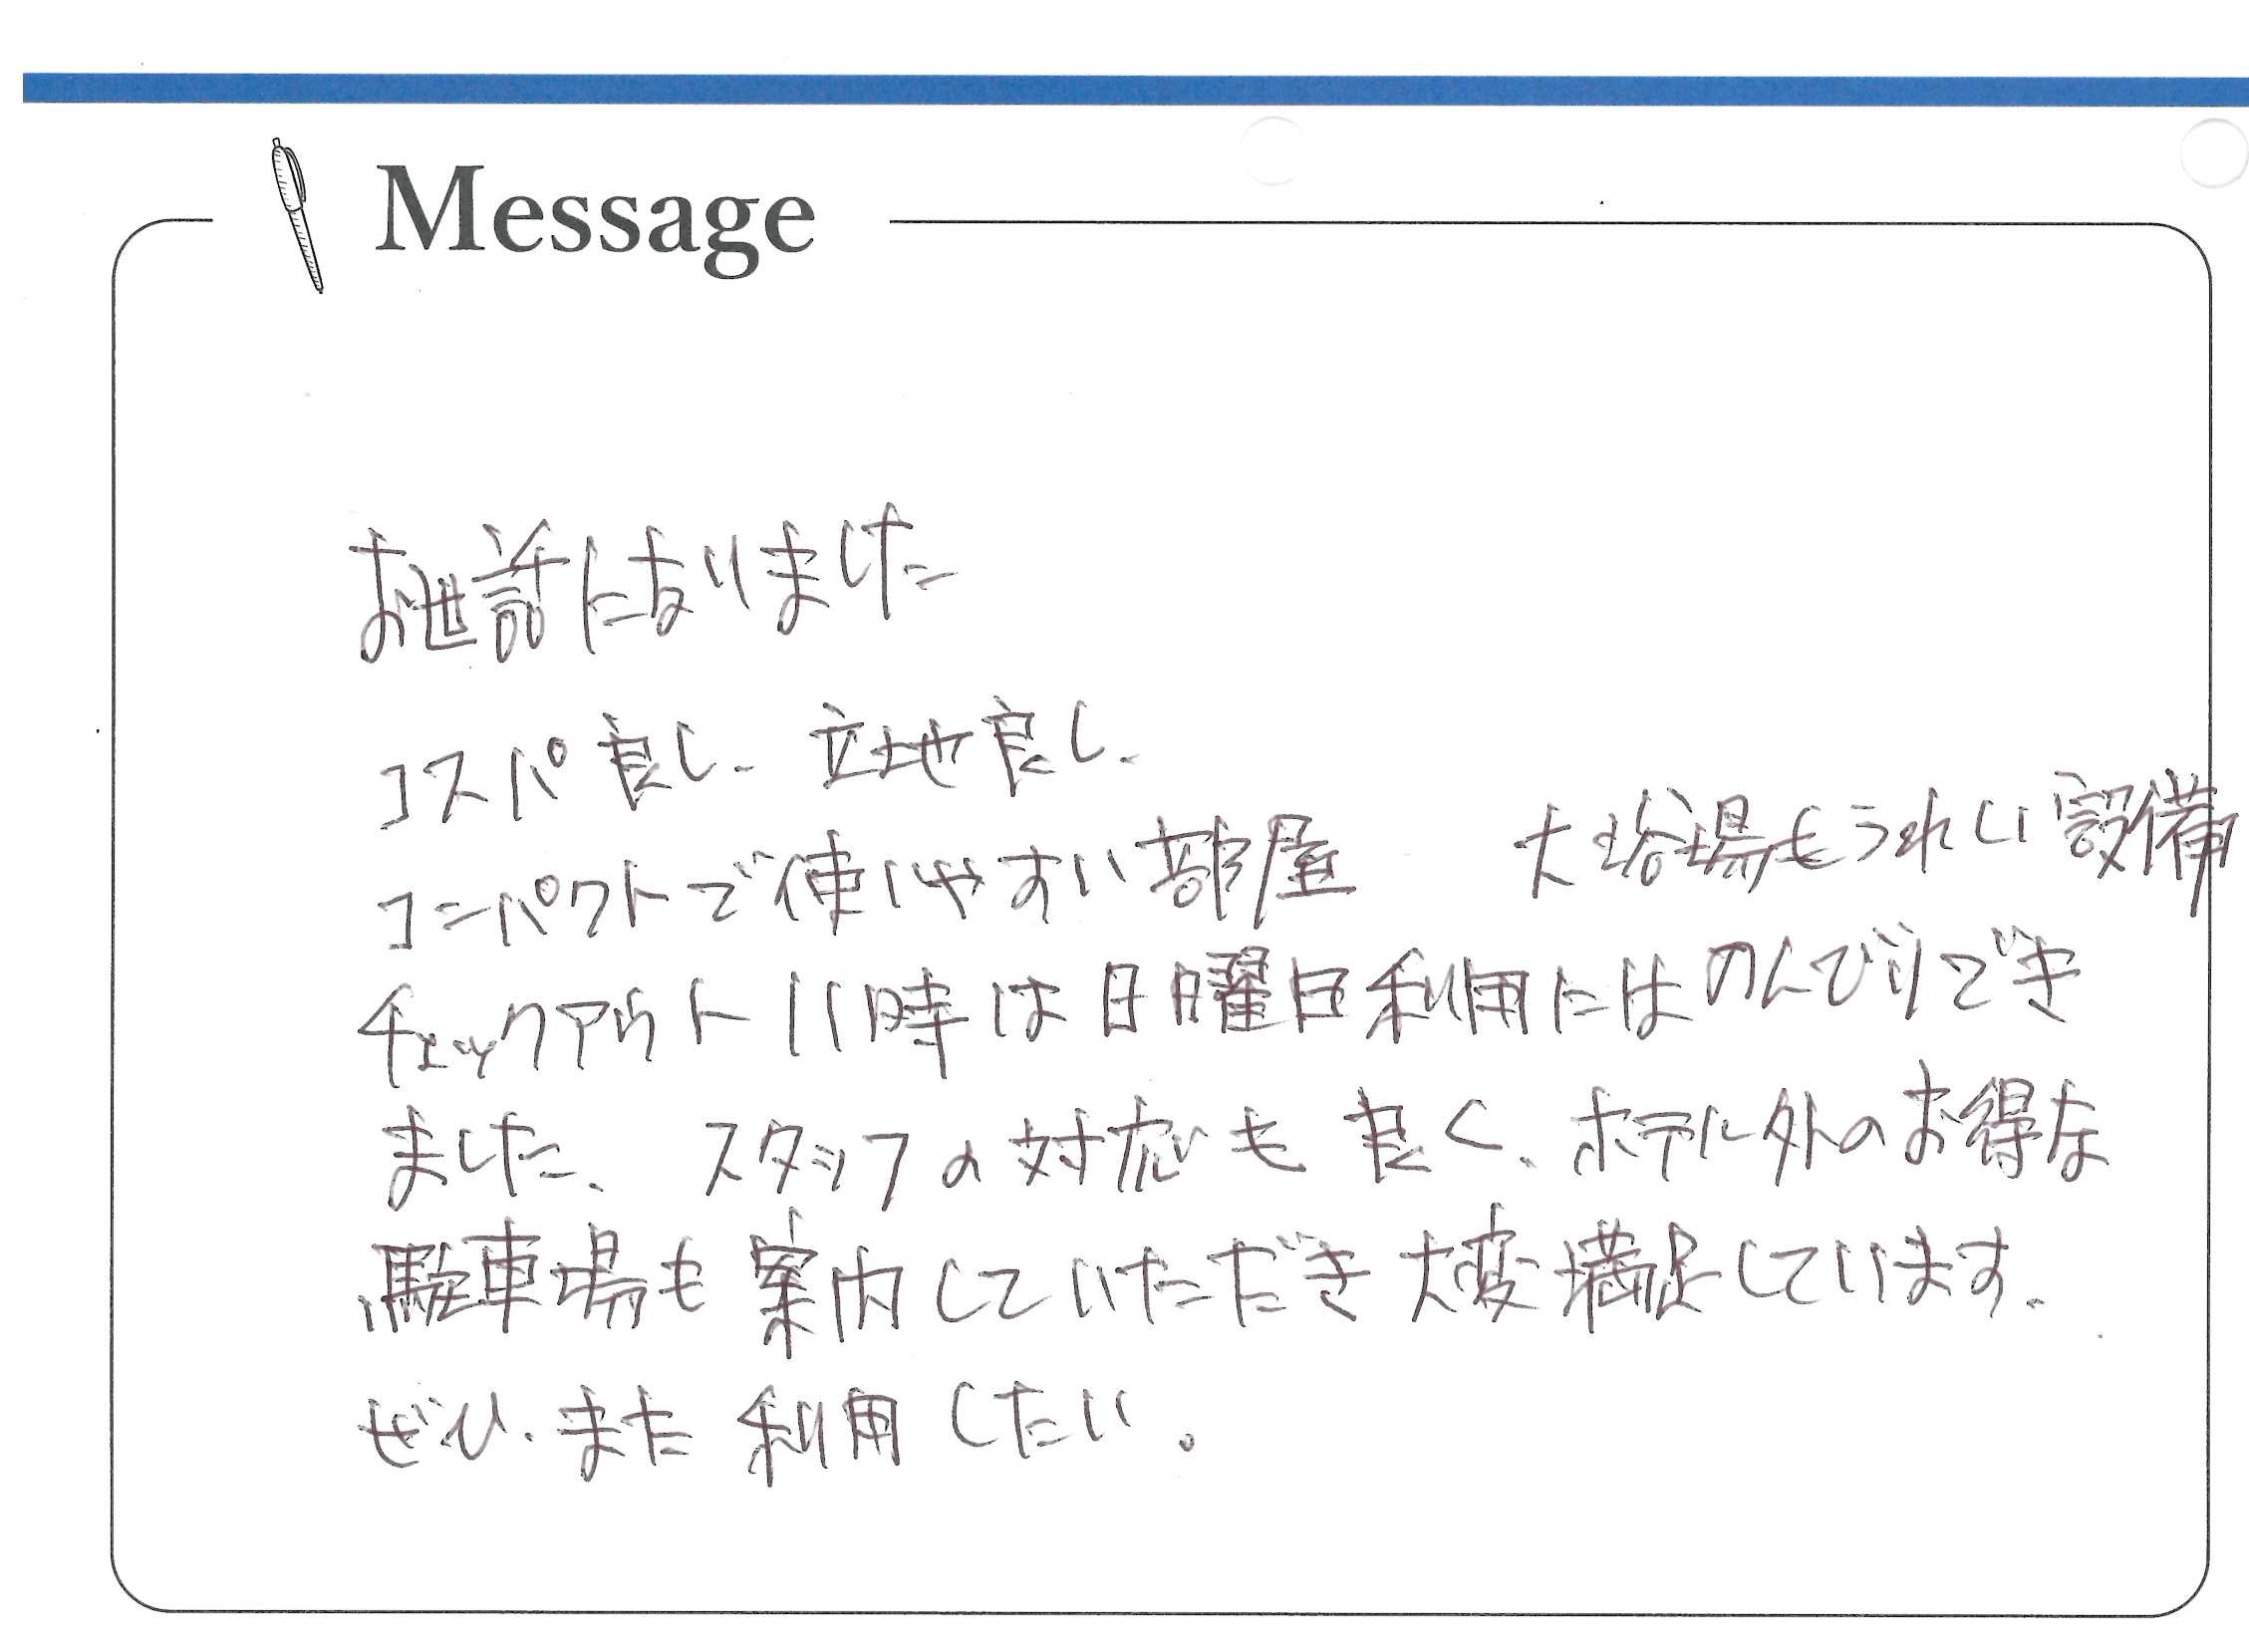 Message
お世話になりました
コスパ良し、立地良し、
コンパクトで使いやすい部屋 大浴場もうれしい設備
チェックアウト11時は日曜日利用にはのんびりでき
ました、スタッフの対応も良く、ホテル外のお得な
駐車場も案内していただき大変満足しています。
ぜひ、また利用したい。